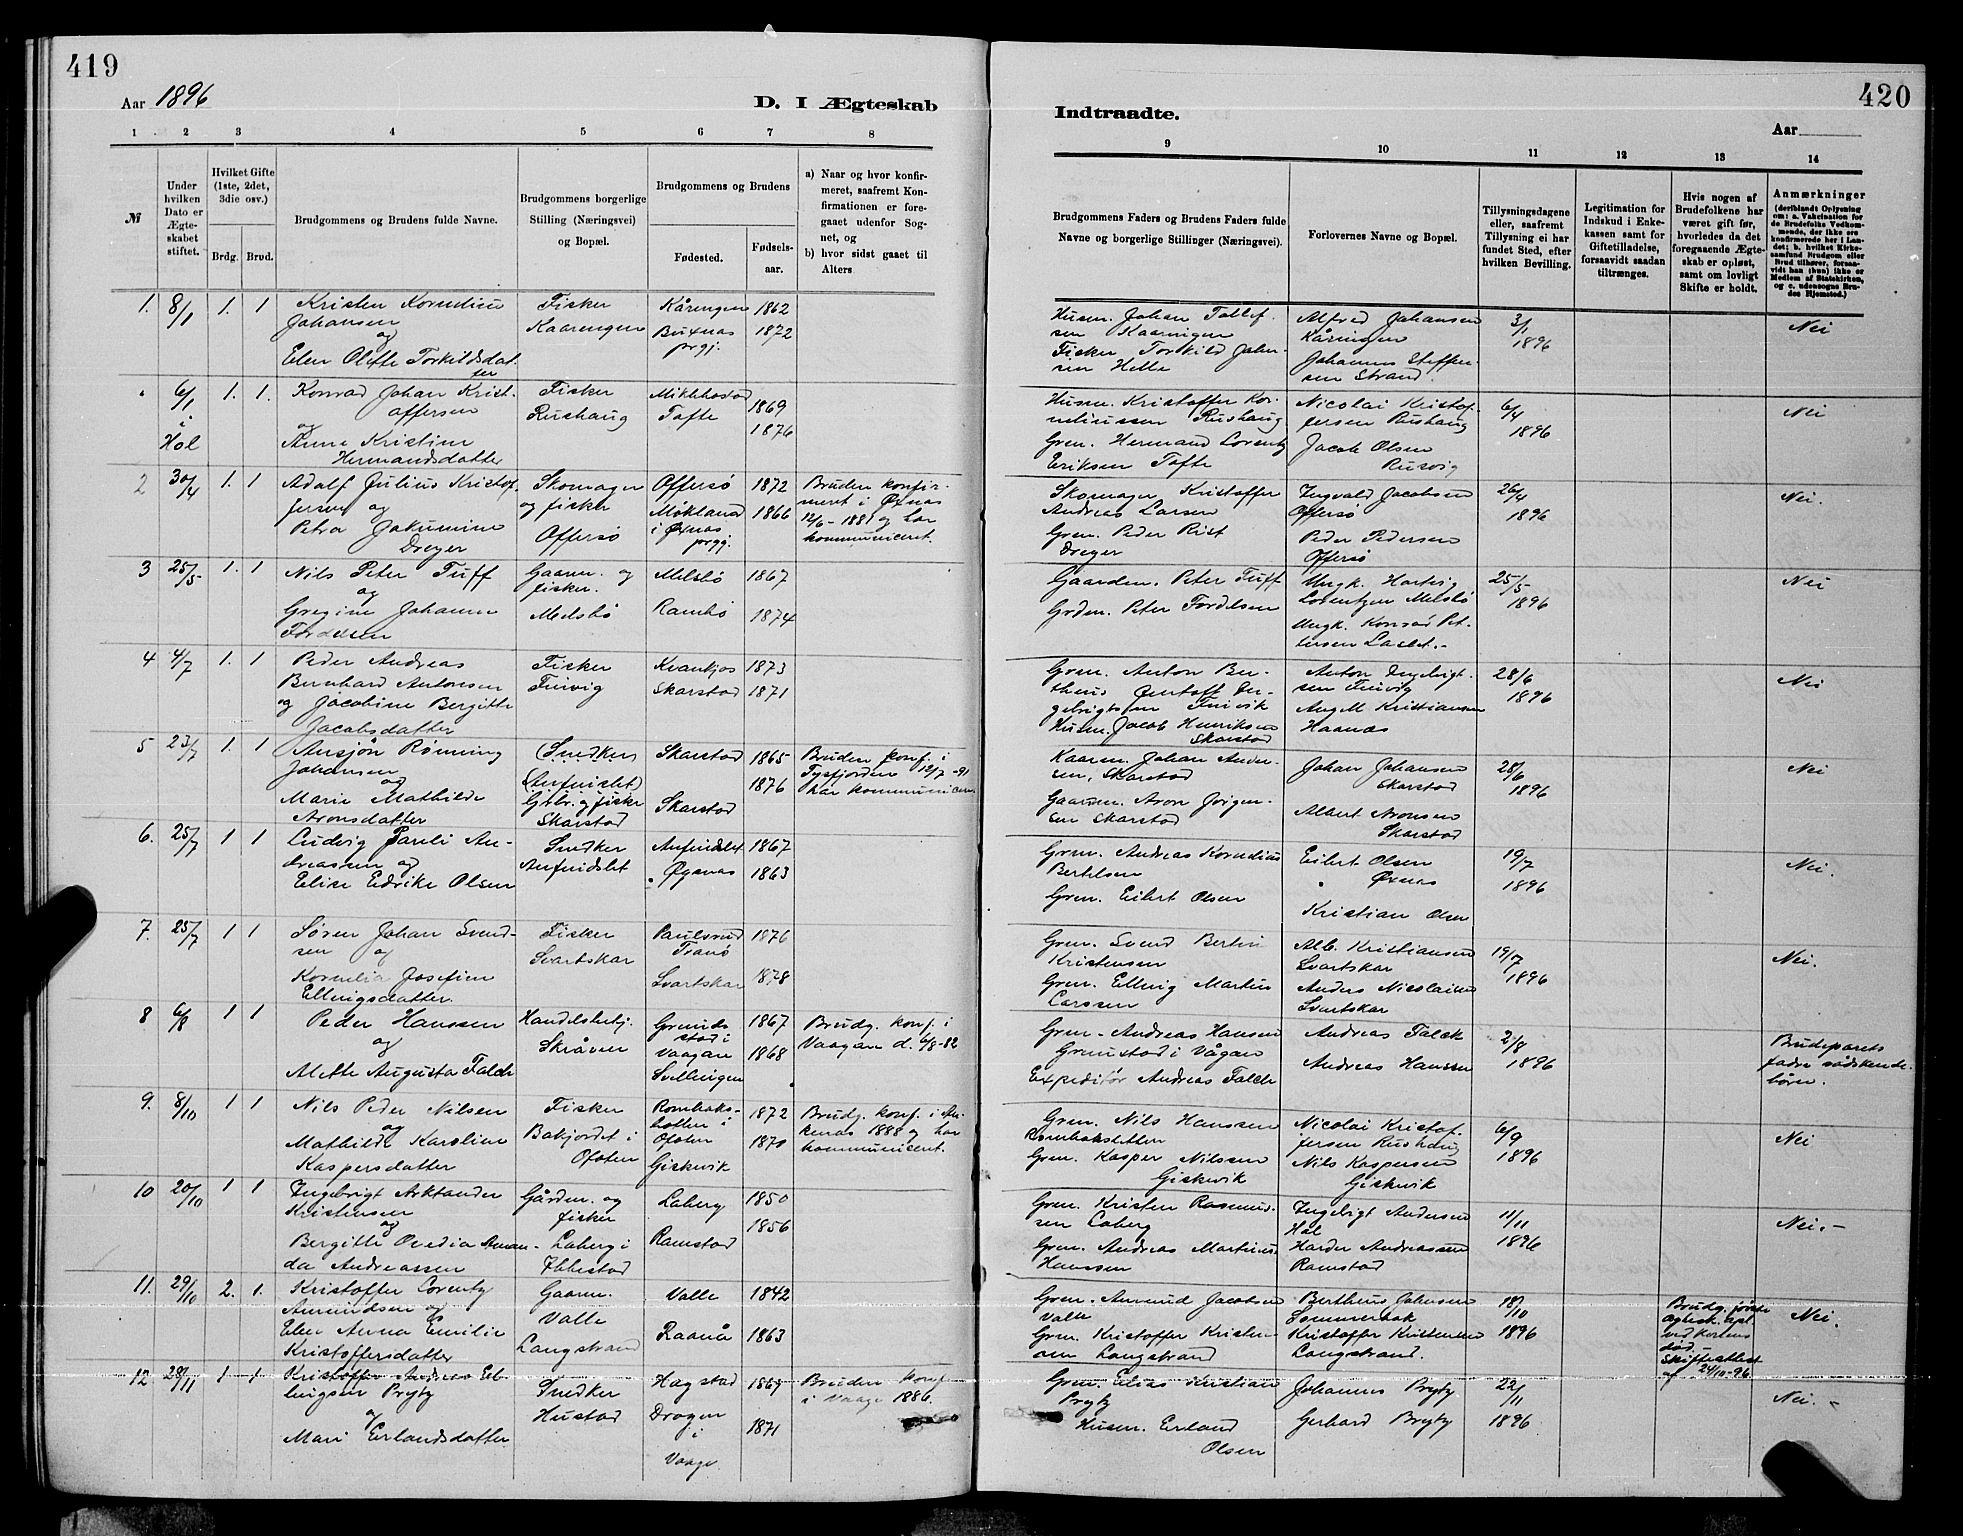 419
Aar 1896
D. I Ægteskab
1. 2 3 4 5 6 7 8
№
Under hvilken Dato er Ægteskabet stiftet.
Hvilket Gifte (1ste, 2det, 3die osv.)
Brdg. Brud.
Brudgommens og Brudens fulde Navne.
Brudgommens borgerlige Stilling (Næringsvei) og Bopæl.
Brudgommens og Brudens
Fødested.
Fødselsaar.
a) Naar og hvor konfirmeret, saafremt Konfirmationen er foregaaet udenfor Sognet, og
b) hvor sidst gaaet til Alters
1. 8/1 1. 1 Kristen Kornelius Johansen og Elen Olette Torkildsdatter
Fisker Kaaringen
Kåringen Buxnas prgj.
1862 1872
6/1 i Hol 1. 1. Konrad Johan Kristoffersen og Anne Kristine Hermandsdatter
Fisker Rushaug
Tofte
1869 1876
2 30/4 1. 1 Adolf Julius Kristoffersen og Petra Jakumine Dreyer
Skomager og fisker Offersø
Offersø Mikland i Øxnas prgj.
1872 1866
Bruden konfirmeret i Øxnas 12/6-1881 og har kommuniceret.
3 25/5 1. 1 Nils Peter Tuff og Gregine Johanne Fordelsen
Gaarm. og fisker. Melsbø
Melsbø Rambø
1867 1874
4 4/7 1. 1 Peder Andreas Bernhard Antonsen og Jacobine Bergitte Jacobsdatter
Fisker Finvig
Kvankjos Skarstad
1873 1871
5 23/7 1. 1 Ansjøn Rønning Johansen og Marie Mathilde Aronsdatter
(Snedker Anfindslet) Gbr. og fisker Skarstad
Skarstad Skarstad
1865 1876
Bruden konf. i Tysfjorden 12/7-91 har kommuniceret
6. 25/7 1 1 Ludvig Pauli Andreassen og Elise Edrike Olsen
Snedker Anfindslet
Anfindslet Øxnas
1867 1863
7. 25/7 1 1 Søren Johan Svendsen og Kornelia Josefine Ellingsdatter.
Fisker Svartskar
Paulsrud Tranø Svartskar
1876 1878
8 6/8 1 1 Peder Hanssen og Mette Augusta Falch
Handelsbetj. Skråven
Grundstad i Vaagan Svellingen
1867 1868
Brudg. konf. i Vaagan d. 6/8-82
9. 8/10 1 1 Nils Peder Nilsen og Mathilde Karoline Kaspersdatter
Fisker Bakjordet i Ofoten
Rombaksbotten i Ofoten Giskevik
1872 1870
Brudg. konf. i Ankenas 1888 og har kommuniceret.
10 20/10 1 1 Ingebrigt Arktander Kristensen og Bergitte Ovedia Amanda Andreassen
Gårdm. og fisker Laberg i Ibbestad
Laberg Ramstad
1850 1856
11. 29/10 2. 1. Kristoffer Lorentz Amundsen og Elen Anna Emilie Kristoffersdatter
Gaarm. Valle Langstrand
Valle Raanå
1842 1863
12 28/11 1 1. Kristoffer Andreas Ellingsen Prytz og Mari Erlandsdatter
Snedker Hustad
Hagstad Dragen i Vaage
1869 1871
Bruden konf. i Vaage 1886.
420
Indtraadte.
Aar
9 10 11 12 13 14
Brudgommens Faders og Brudens Faders fulde Navne og borgerlige Stillinger (Næringsvei).
Forlovernes Navne og Bopæl.
Tillysningsdagene eller, saafremt Tillysning ei har fundet Sted, efter hvilken Bevilling.
Legitimation for Indskud i Enkekassen samt for Giftetilladelse, forsaavidt saadan tiltrænges.
Hvis nogen af Brudefolkene har været gift før, hvorledes da det foregaaende Ægteskab er opløst, samt om lovligt Skifte er holdt.
Anmærkninger (deriblandt Oplysning om: a. Vakcination for de Brudefolks Vedkommende, der ikke ere konfirmerede her i Landet; b. hvilket Kirkesamfund Brudgom eller Brud tilhører, forsaavidt han (hun) ikke er Medlem af Statskirken, og c. udensogns Brudes Hjemsted.)
Husm. Johan Tollefsen Kaaringen Fisker Torkild Johnsen Helle
Alfred Johansen Kåringen Johannes Steffensen Strand.
3/1 1896
Nei
Husm. Kristoffer Korneliussen Rushaug Grm. Hermand Lorentz Eriksen Tofte
Nicolai Kristoffersen Rushaug Jacob Olsen Rusvig
6/4 1896
Nei
Skomager Kristoffer Andreas Larsen Grm. Peder Rist Dreyer
Ingvald Jacobsen Offersø Peder Pedersen Offersø
26/4 1896
Nei.
Gaardm. Peter Tuff Grdm. Peter Fordelsen
Ungk. Hartvig Lorentzen Melsbø Ungk. Konrad Pettersen
25/5 1896
Nei
Grm. Anton Bertheus Ingebrigtsen Finvik Husm. Jacob Henriksen Skarstad
Anton Ingebrigtsen Finvig Aug M Kristiansen Haanas
28/6 1896
Nei
Kaarm. Johan Andersen, Skarstad Gaarm. Aron Jørgensen Skarstad
Johan Johansen Skarstad Albert Aronsen Skarstad
28/6 1896
Nei
Grm. Andreas Kornelius Bertelsen Grm. Eilert Olsen
Eilert Olsen Øxnas Kristian Olsen
19/7 1896
Nei.
Grm. Svend Bertin Kristensen Grm. Elling Martin Larssen
Alb. Kristiansen Svartskar Anders Nicolaisen Svartskar
19/7 1896
Nei.
Grm. Andreas Hansen Grunstad i Vågan Expeditør Andreas Falch
Andreas Falck Andreas Hanssen
2/8 1896
Brudeparets fadre sødskendebörn.
Grm. Nils Hanssen Rombaksbotten Grm. Kasper Nilssen Giskevik
Nicolai Kristoffersen Rushaug Nils Kaspersen Giskevik
6/9 1896
Nei
Grm. Kristen Rasmussen Laberg Grm. Andreas Martinus Hanssen
Ingebrigt Andersen Hol Harder Andreassen Ramstad
11/11 1896
Nei.-
Grm. Amund Jacobsen Valle Grm. Kristoffer Kristensen Langstrand
Bertheus Johnsen Sommerbak Kristoffer Kristensen Langstrand.
18/10 1896
Brudg. første Agtesk. opl. ved Konens død. - Skifteattest af 24/10-96
Nei.
Grm. Elias Kristian Prytz Husm. Erland Olsen
Johannes Prytz Gerhard Prytz
22/11 1896
Nei. -